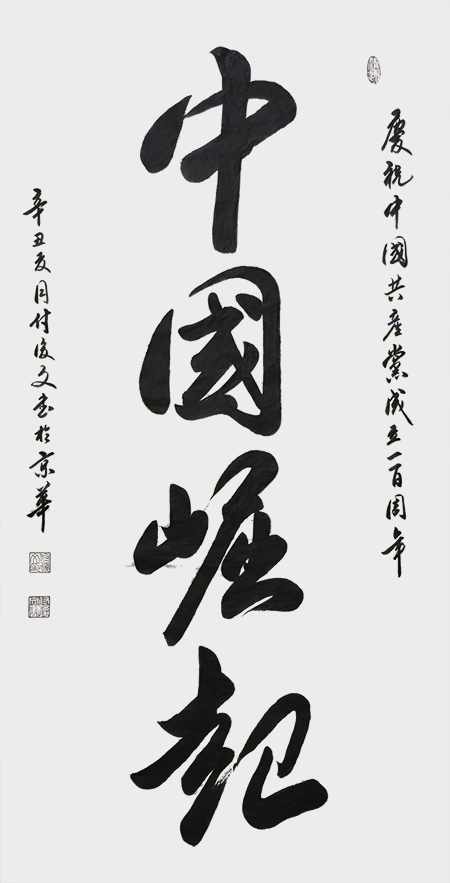 慶祝中國共產黨成立一百周年
中國崛起
辛丑夏月付俊文書於京華